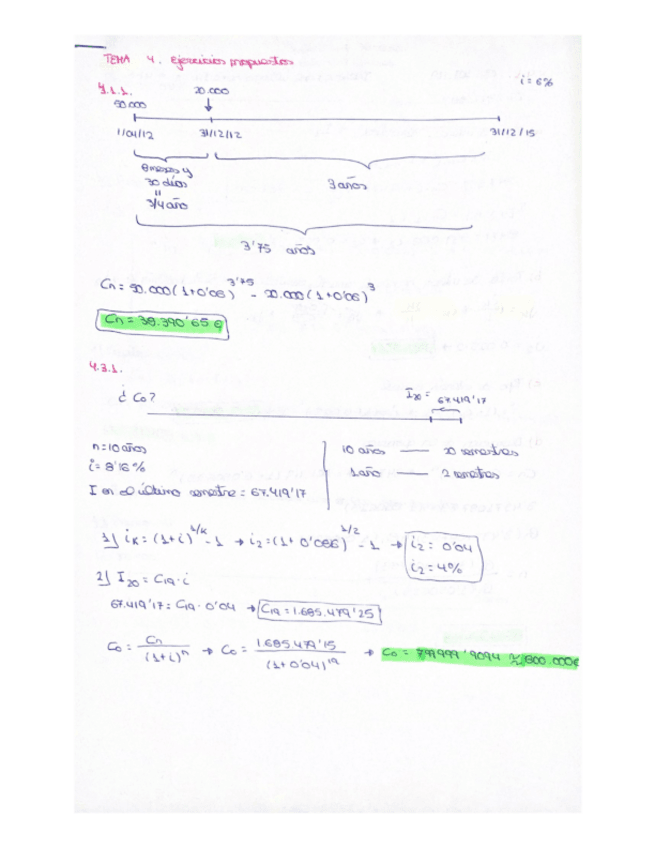 TEMA 4. Ejercicios propuestos
4.1.1.
i = 6%
50.000 20.000
1/04/12 31/12/12 31/12/15
8 meses y
30 días
=
3/4 año
3 años
3'75 años
Cn = 50.000 (1+0'06)^3'75 - 20.000 (1+0'06)^3
Cn = 38.390'65 €
4.3.1.
¿Co?
I20 = 67.419'17
n = 10 años
i = 8'16%
I en el último semestre = 67.419'17
10 años — 20 semestres
1 año — 2 semestres
1) iK = (1+i)^1/K - 1 → i2 = (1+0'086)^1/2 - 1 → i2 = 0'04
i2 = 4%
2) I20 = C19 · i
67.419'17 = C19 · 0'04 → C19 = 1.685.479'25
Co = Cn / (1+i)^n → Co = 1.685.479'15 / (1+0'04)^19 → Co = 799.999'9094 ≈ 800.000€